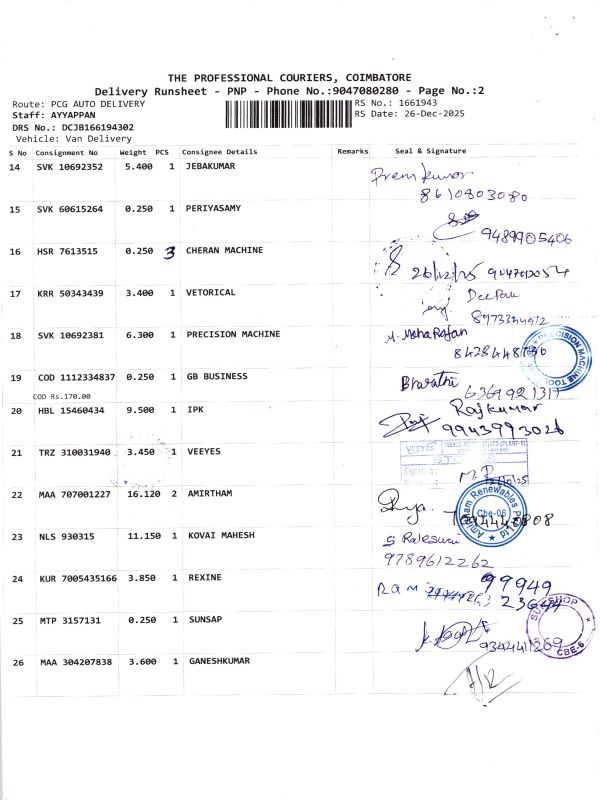 THE PROFESSIONAL COURIERS, COIMBATORE
Delivery Runsheet - PNP - Phone No.:9047080280 - Page No.:2
Route: PCG AUTO DELIVERY RS No.: 1661943
Staff: AYYAPPAN RS Date: 26-Dec-2025
DRS No.: DCJB166194302
Vehicle: Van Delivery
S No Consignment No Weight PCS Consignee Details Remarks Seal & Signature
14 SVK 10692352 5.400 1 JEBAKUMAR Prem kumar
8610803080
15 SVK 60615264 0.250 1 PERIYASAMY
9489905406
16 HSR 7613515 0.250 3 CHERAN MACHINE
26/12/25
17 KRR 50343439 3.400 1 VETORICAL Deepak
18 SVK 10692381 6.300 1 PRECISION MACHINE
PRECISION MACHINE TOOLS
19 COD 1112334837 0.250 1 GB BUSINESS Bharathi
COD Rs.170.00
20 HBL 15460434 9.500 1 IPK Rajkumar
9943993026
21 TRZ 310031940 3.450 1 VEEYES VEEYES
STORES
22 MAA 707001227 16.120 2 AMIRTHAM
Amirtham Renewables Pvt Ltd
Cbe-06
23 NLS 930315 11.150 1 KOVAI MAHESH
9789612262
24 KUR 7005435166 3.850 1 REXINE Ram 99949
25 MTP 3157131 0.250 1 SUNSAP
9344411269
CBE-6
26 MAA 304207838 3.600 1 GANESHKUMAR